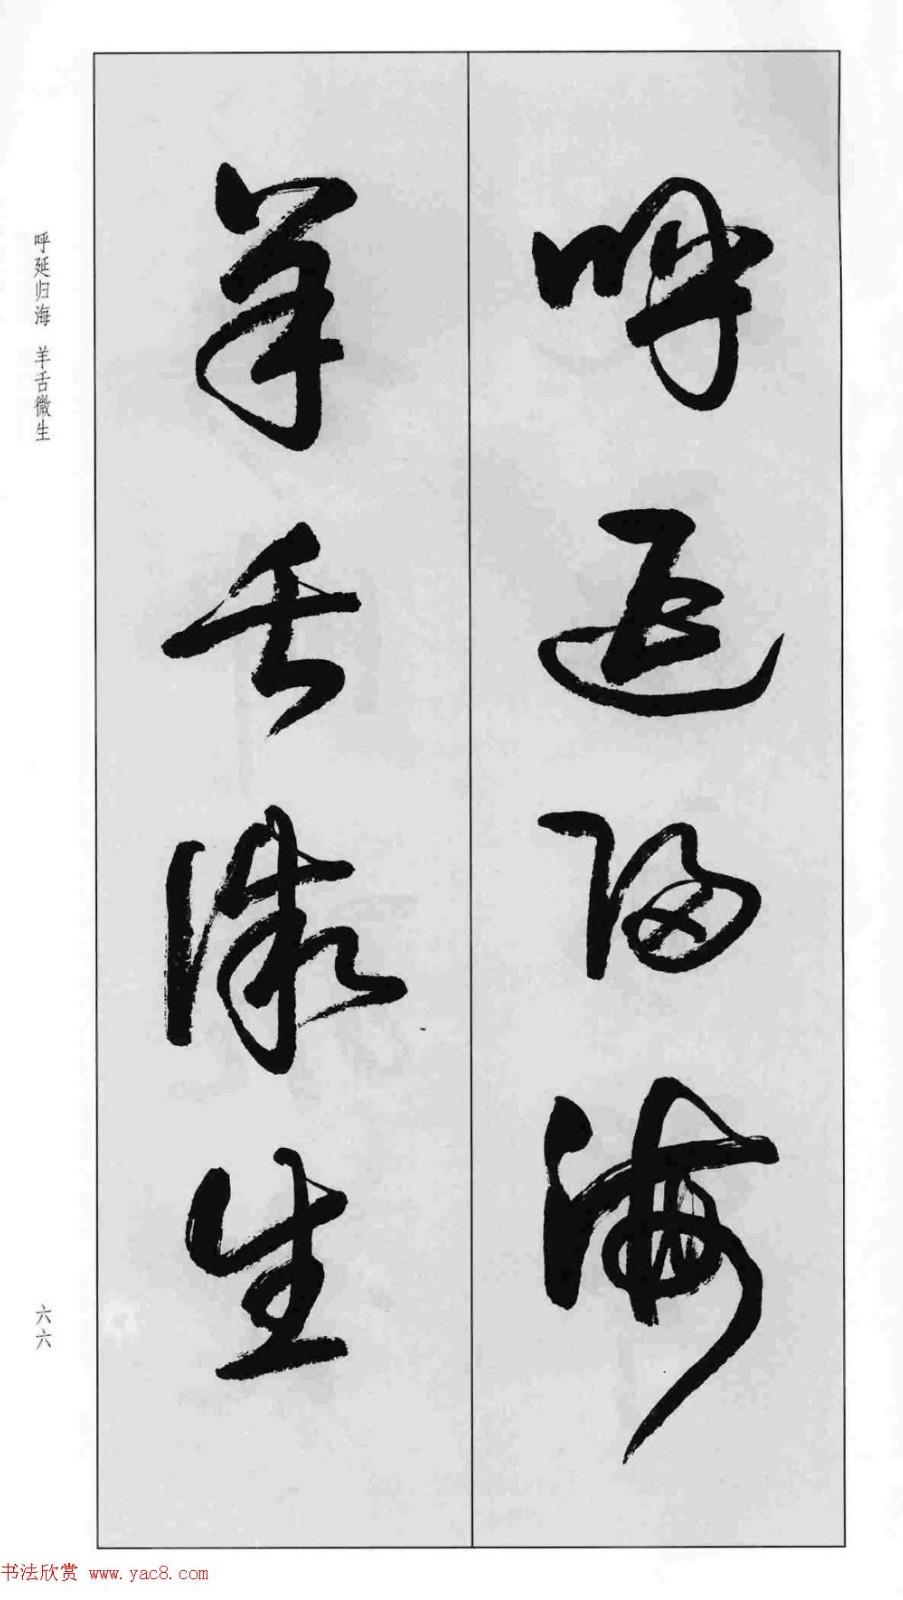 呼延归海
羊舌微生
呼延归海 羊舌微生
六六
书法欣赏 www.yac8.com